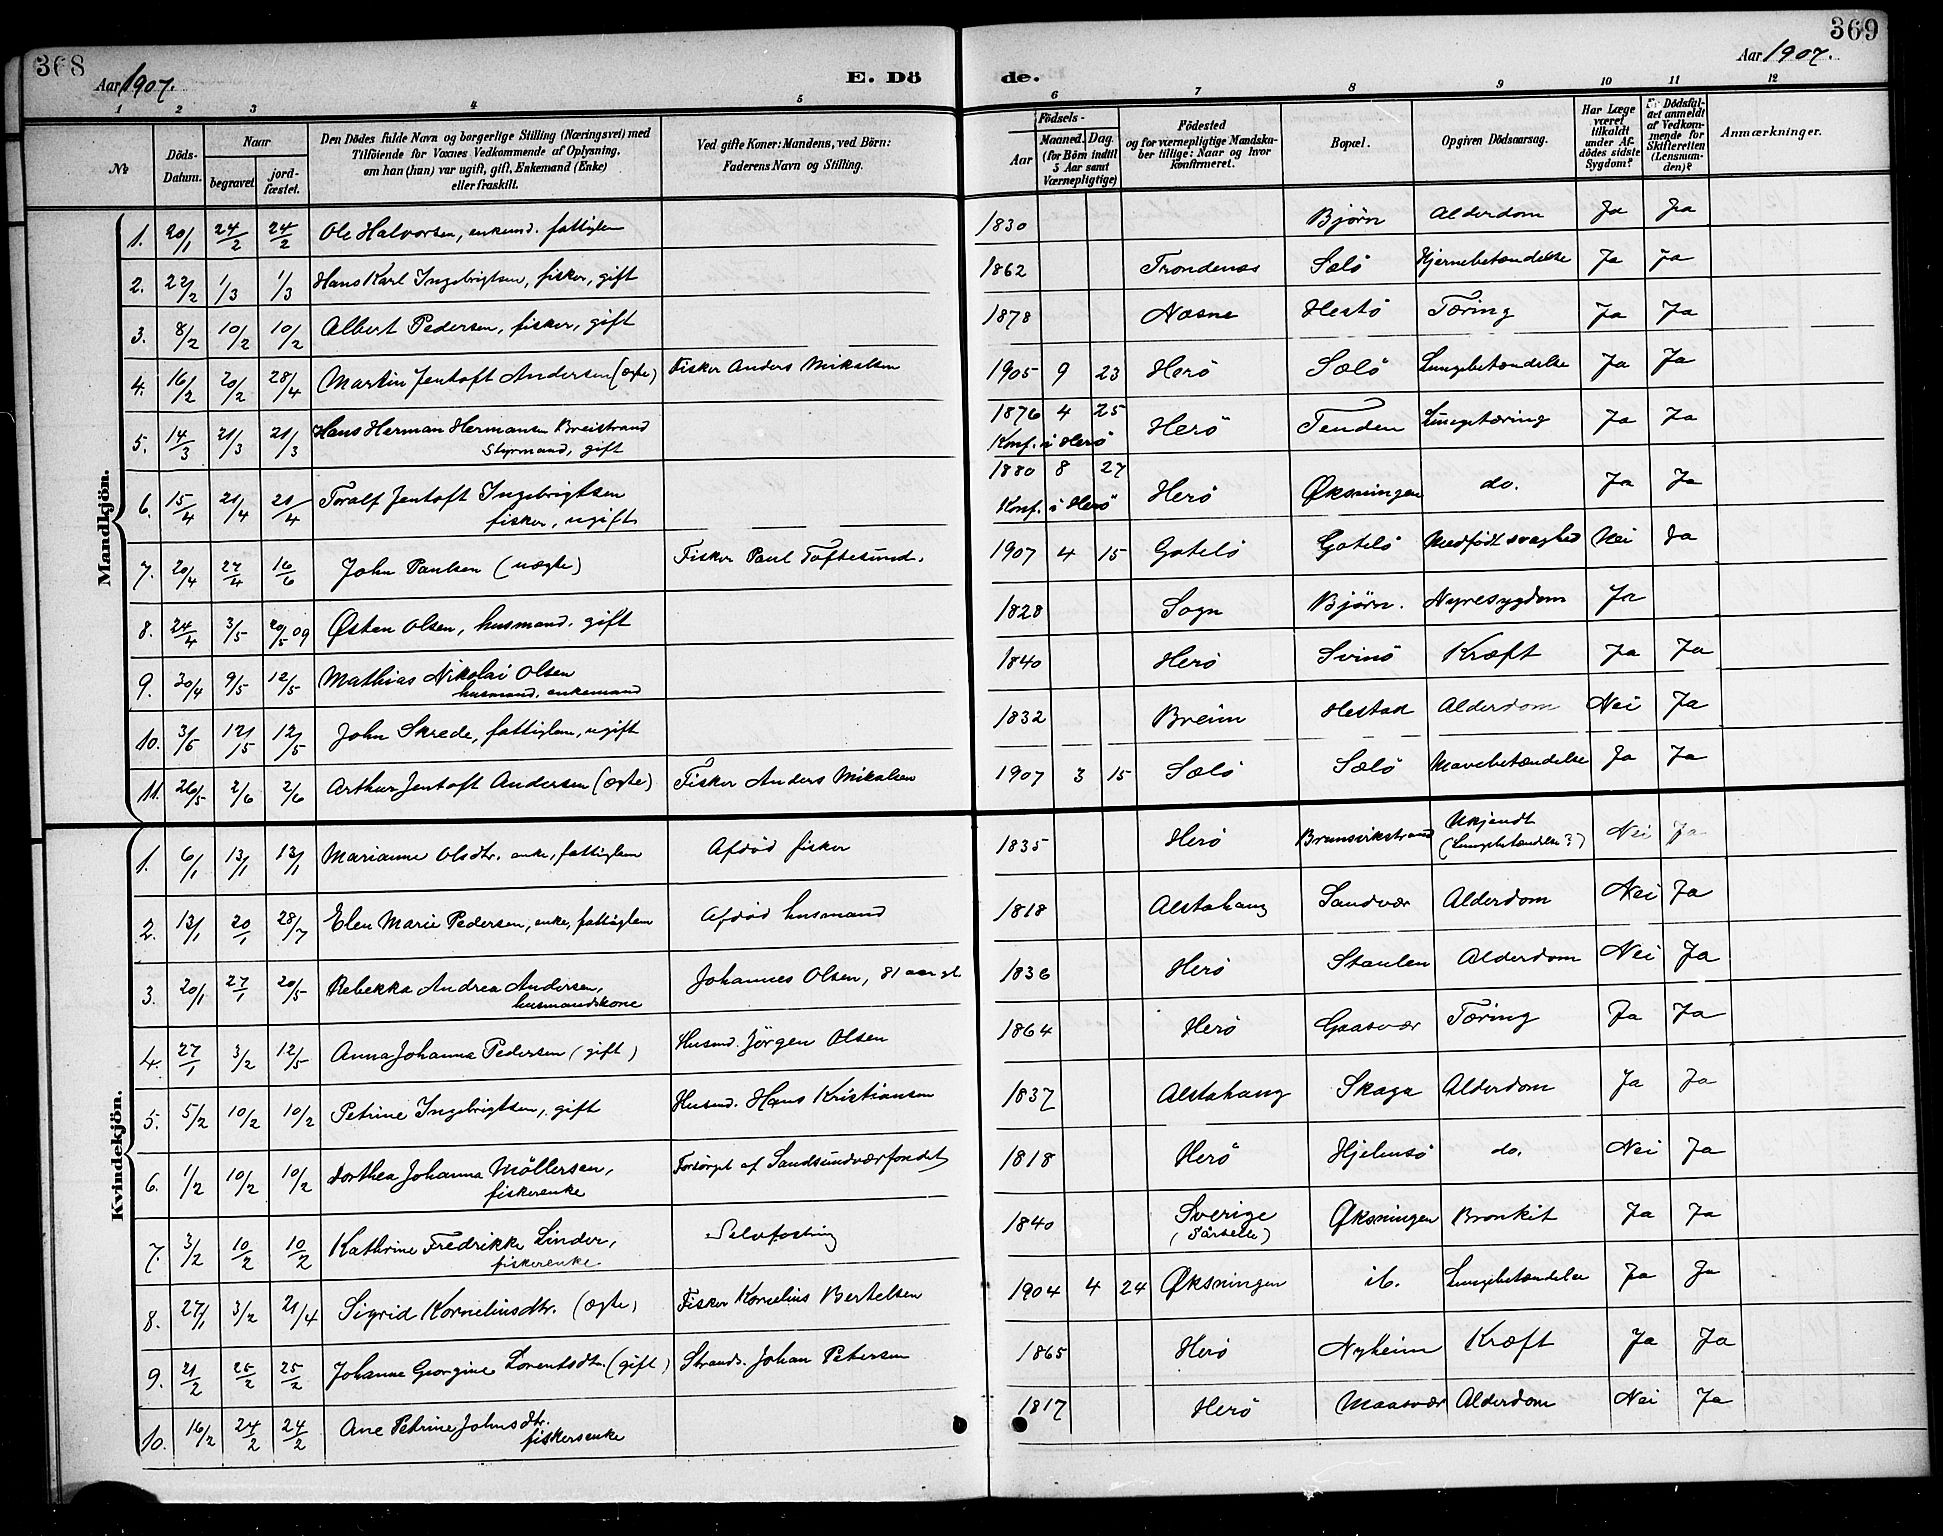 368
369
Aar 1907.
E. Dö
de.
Aar 1907.
1 2 3 4 5 6 7 8 9 10 11 12
№
Döds-Datum.
Naar
begravet
jord-fæstet.
Den Dödes fulde Navn og borgerlige Stilling (Næringsvei) med
Tilföiende for Voxnes Vedkommende af Oplysning,
om han (hun) var ugift, gift, Enkemand (Enke)
eller fraskilt.
Ved gifte Koner: Mandens, ved Börn:
Faderens Navn og Stilling.
Födsels-
Aar
Maaned. Dag.
(for Börn indtil
5 Aar samt
Værnepligtige)
Födested
og for værnepligtige Mandska-
ber tillige: Naar og hvor
konfirmeret.
Bopæl.
Opgiven Dödsaarsag.
Har Læge
været
tilkaldt
under Af-
dödes sidste
Sygdom?
Er Dödsfal-
det anmeldt
af Vedkom-
mende for
Skifteretten
(Lensman-
den)?
Anmærkninger.
Mandkjön.
1. 20/1 24/2 24/2 Ole Halvorsen, enkemd. fattiglem 1830 Bjørn Alderdom Ja Ja
2. 22/2 1/3 1/3 Hans Karl Ingebrigtsen, fisker, gift 1862 Trondenæs Sælö Hjernebetændelse Ja Ja
3. 8/2 10/2 10/2 Albert Pedersen, fisker, gift 1878 Næsne Hestö Tæring Ja Ja
4. 16/2 20/2 28/4 Martin Jentoft Andersen (ægte) Fisker Anders Mikalsen 1905 9 23 Herö Sælö Lungebetændelse Ja Ja
5. 14/3 21/3 21/3 Hans Herman Hermansen Breistrand 1876 4 25 Herö Tenden Lungetæring Ja Ja
Styrmand, gift Konf. i Herö
6. 15/4 21/4 21/4 Toralf Jentoft Ingebrigtsen 1880 8 27 Herö Øksningen do. Ja Ja
fisker, ugift Konf. i Herö
7. 20/4 27/4 16/6 John Paulsen (uægte) Fisker Paul Toftesund. 1907 4 15 Gotelö Gotelö Medfödt svaghed Nei Ja
8. 24/4 3/5 20/5 09 Østen Olsen, husmand. gift 1828 Sogn Bjørn. Nyresygdom Ja
9. 30/4 9/5 12/5 Mathias Nikolai Olsen 1840 Herö Svinö Kræft Ja Ja
husmand, enkemand
10. 3/5 12/5 12/5 John Skrede, fattiglem, ugift 1832 Breim Hestad Alderdom Nei Ja
11. 26/5 2/6 2/6 Arthur Jentoft Andersen (ægte) Fisker Anders Mikalsen 1907 3 15 Sælö Sælö Mavebetændelse Ja Ja
Kvindekjön.
1. 6/1 13/1 13/1 Marianne Olsdtr. enke, fattiglem Afdød fisker 1835 Herö Brunsvikstrand Ukjendt Nei Ja
(Lungebetændelse?)
2. 13/1 20/1 28/7 Elen Marie Pedersen, enke, fattiglem Afdød husmand 1818 Alstahaug Sandvær Alderdom Nei Ja
3. 20/1 27/1 20/5 Rebekka Andrea Andersen, Johannes Olsen, 81 aar gl. 1836 Herö Staulen Alderdom Nei Ja
husmandskone
4. 27/1 3/2 12/5 Anna Johanna Pedersen (gift) Husmd. Jörgen Olsen 1864 Herö Gaasvær Tæring Ja Ja
5. 5/2 10/2 10/2 Petrine Ingebrigtsen, gift Husmd. Hans Kristiansen 1837 Alstahaug Skaga Alderdom Ja Ja
6. 1/2 10/2 10/2 Dorthea Johanna Möllersen, Forsörget af Sandsundværfondet 1818 Herö Hjelmsö do. Nei Ja
fiskerenke
7. 3/2 10/2 10/2 Kathrine Fredrikke Linder, Selvfostring 1840 Sverige Øksningen Bronkit Ja Ja
fiskerenke (Sårselle)
8. 27/1 3/2 21/4 Sigrid Korneliusdtr. (ægte) Fisker Kornelius Bertelsen 1904 4 24 Øksningen ib. Lungebetændelse Ja Ja
9. 21/2 25/2 25/2 Johanne Georgine Lorentsdtr. (gift) Strands. Johan Petersen 1865 Herö Nyheim Kræft Ja Ja
10. 16/2 24/2 24/2 Ane Petrine Johnsdtr. 1817 Herö Maasvær Alderdom Nei Ja
fiskersenke